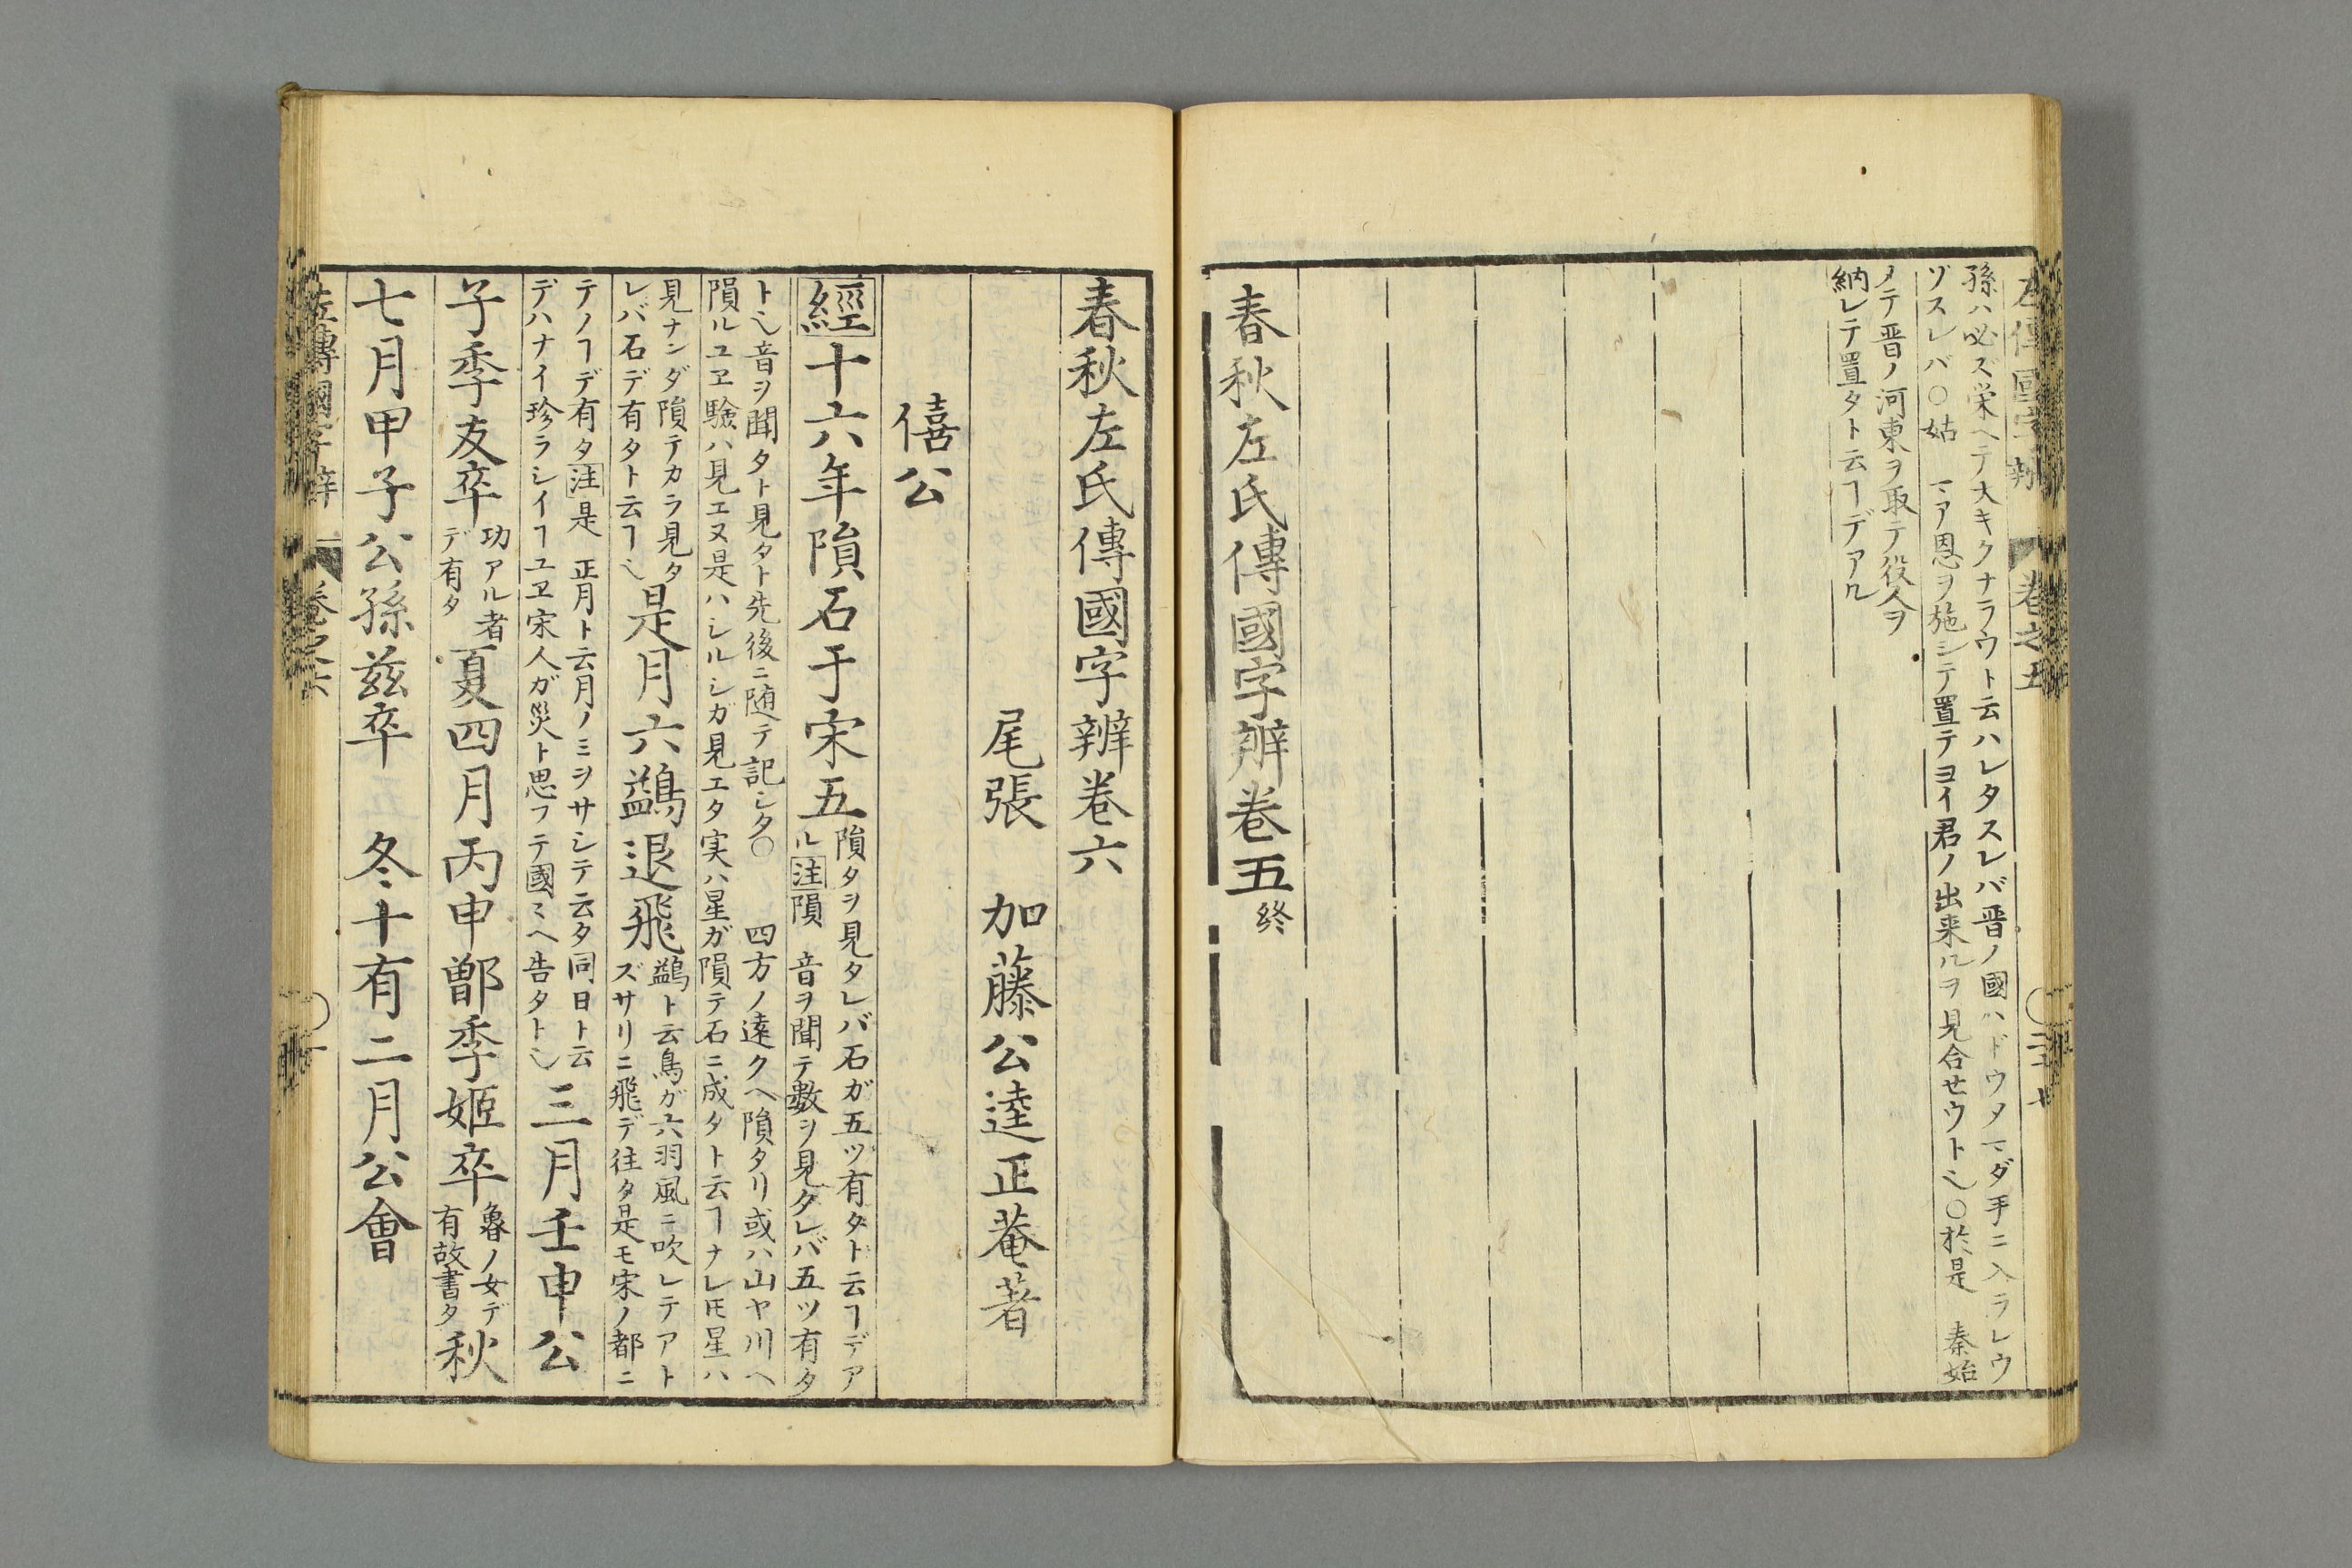 孫ハ必ズ栄ヘテ大キクナラウト云ハレタスレバ晋ノ國ハドウメマダ手ニ入ラレウ
ゾスレバ〇姑　マア恩ヲ施シテ置テヨイ君ノ出来ルヲ見合セウトシ〇於是　秦始
メテ晋ノ河東ヲ取テ役人ヲ
納レテ置タト云ヿデアル
春秋左氏傳國字辨巻五終
春秋左氏傳國字辨巻六
尾張　加藤公逵正菴著
僖公
經十六年隕石于宋五
隕タヲ見タレバ石ガ五ツ有タト云ヿデア
ル注隕　音ヲ聞テ數ヲ見タレバ五ツ有タ
トシ音ヲ聞タト見タト先後ニ随テ記シタ〇　四方ノ遠クヘ隕タリ或ハ山ヤ川ヘ
隕ルユヱ驗ハ見エヌ是ハシルシガ見エタ実ハ星ガ隕テ石ニ成タト云ヿナレ𪜈星ハ
見ナンダ隕テカラ見タ
レバ石デ有タト云ヿシ
是月六鷁退飛
鷁ト云鳥ガ六羽風ニ吹レテアト
ズサリニ飛デ往タ是モ宋ノ都ニ
テノヿデ有タ注是　正月ト云月ノミヲサシテ云タ同日ト云
デハナイ珍ラシイヿユヱ宋人ガ災ト思フテ國ミヘ告タトシ
三月壬申公
子季友卒
功アル者
デ有タ
夏四月丙申鄫季姬卒
魯ノ女デ
有故書タ
秋
七月甲子公孫茲卒　冬十有二月公會
左傳國字辨　巻之六　一